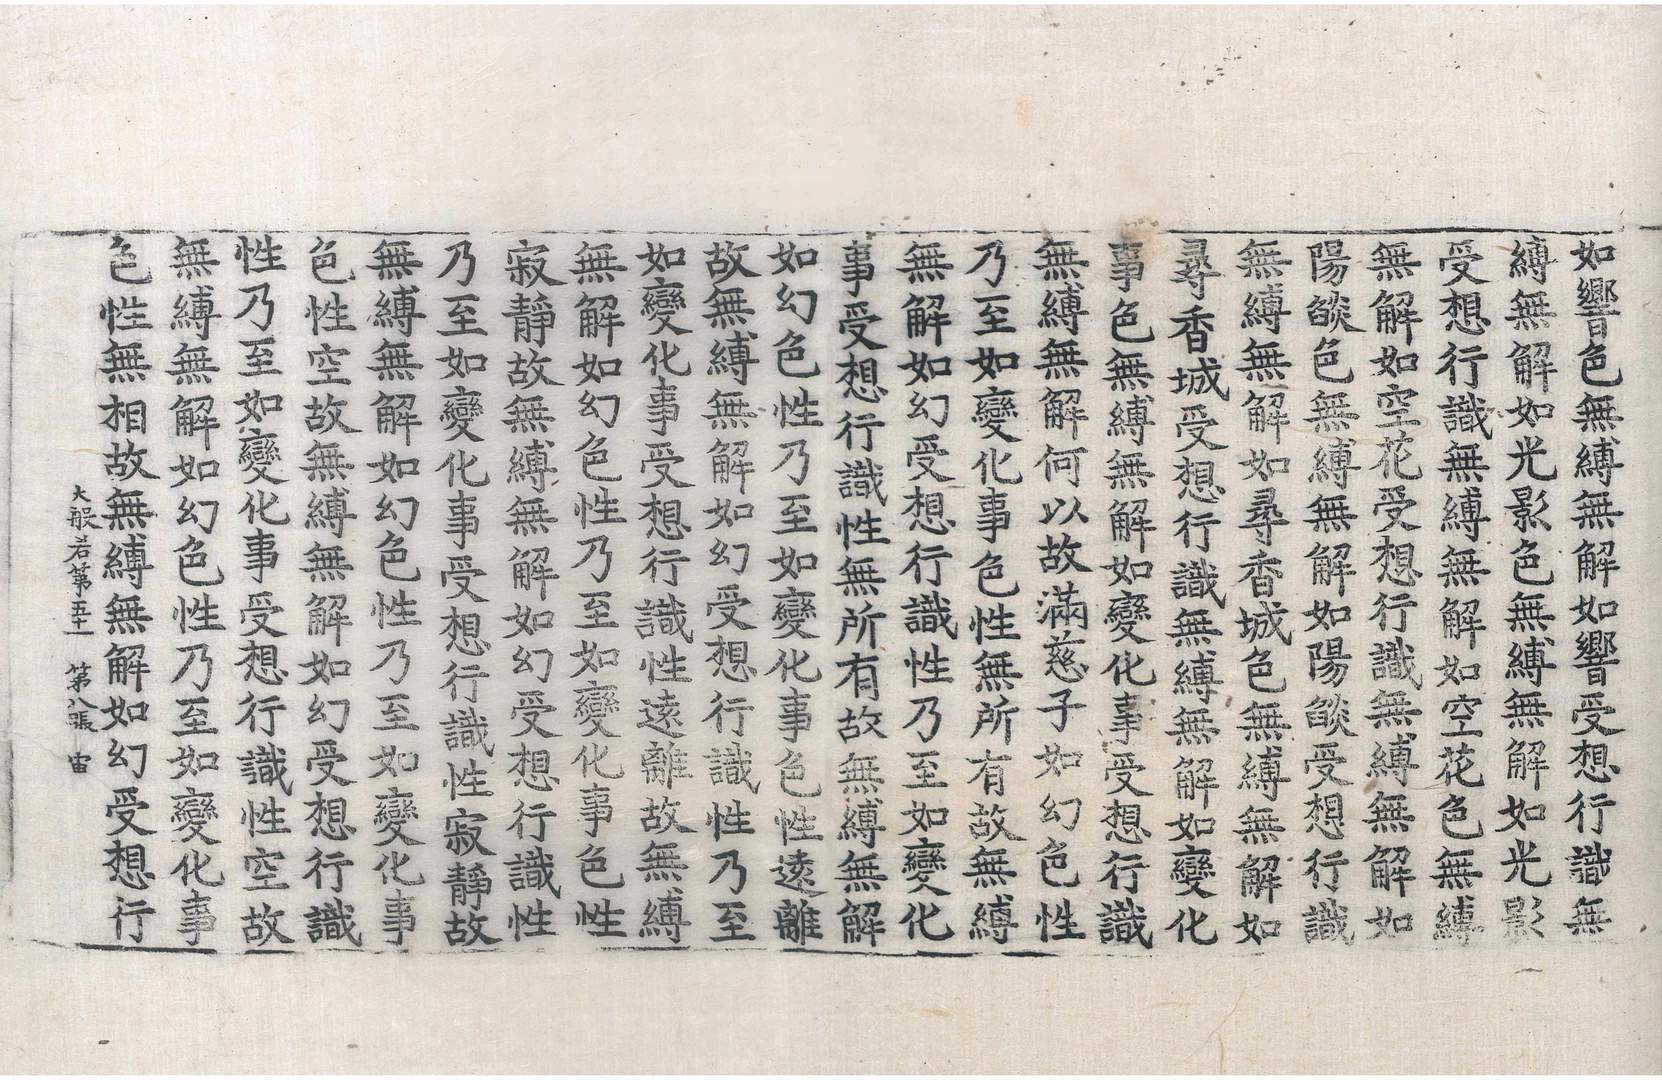 如響色無縛無解如響受想行識無
縛無解如光影色無縛無解如光影
受想行識無縛無解如空花色無縛
無解如空花受想行識無縛無解如
陽燄色無縛無解如陽燄受想行識
無縛無解如尋香城色無縛無解如
尋香城受想行識無縛無解如變化
事色無縛無解如變化事受想行識
無縛無解何以故滿慈子如幻色性
乃至如變化事色性無所有故無縛
無解如幻受想行識性乃至如變化
事受想行識性無所有故無縛無解
如幻色性乃至如變化事色性遠離
故無縛無解如幻受想行識性乃至
如變化事受想行識性遠離故無縛
無解如幻色性乃至如變化事色性
寂靜故無縛無解如幻受想行識性
乃至如變化事受想行識性寂靜故
無縛無解如幻色性乃至如變化事
色性空故無縛無解如幻受想行識
性乃至如變化事受想行識性空故
無縛無解如幻色性乃至如變化事
色性無相故無縛無解如幻受想行
大般若第五十一 第八張 宙